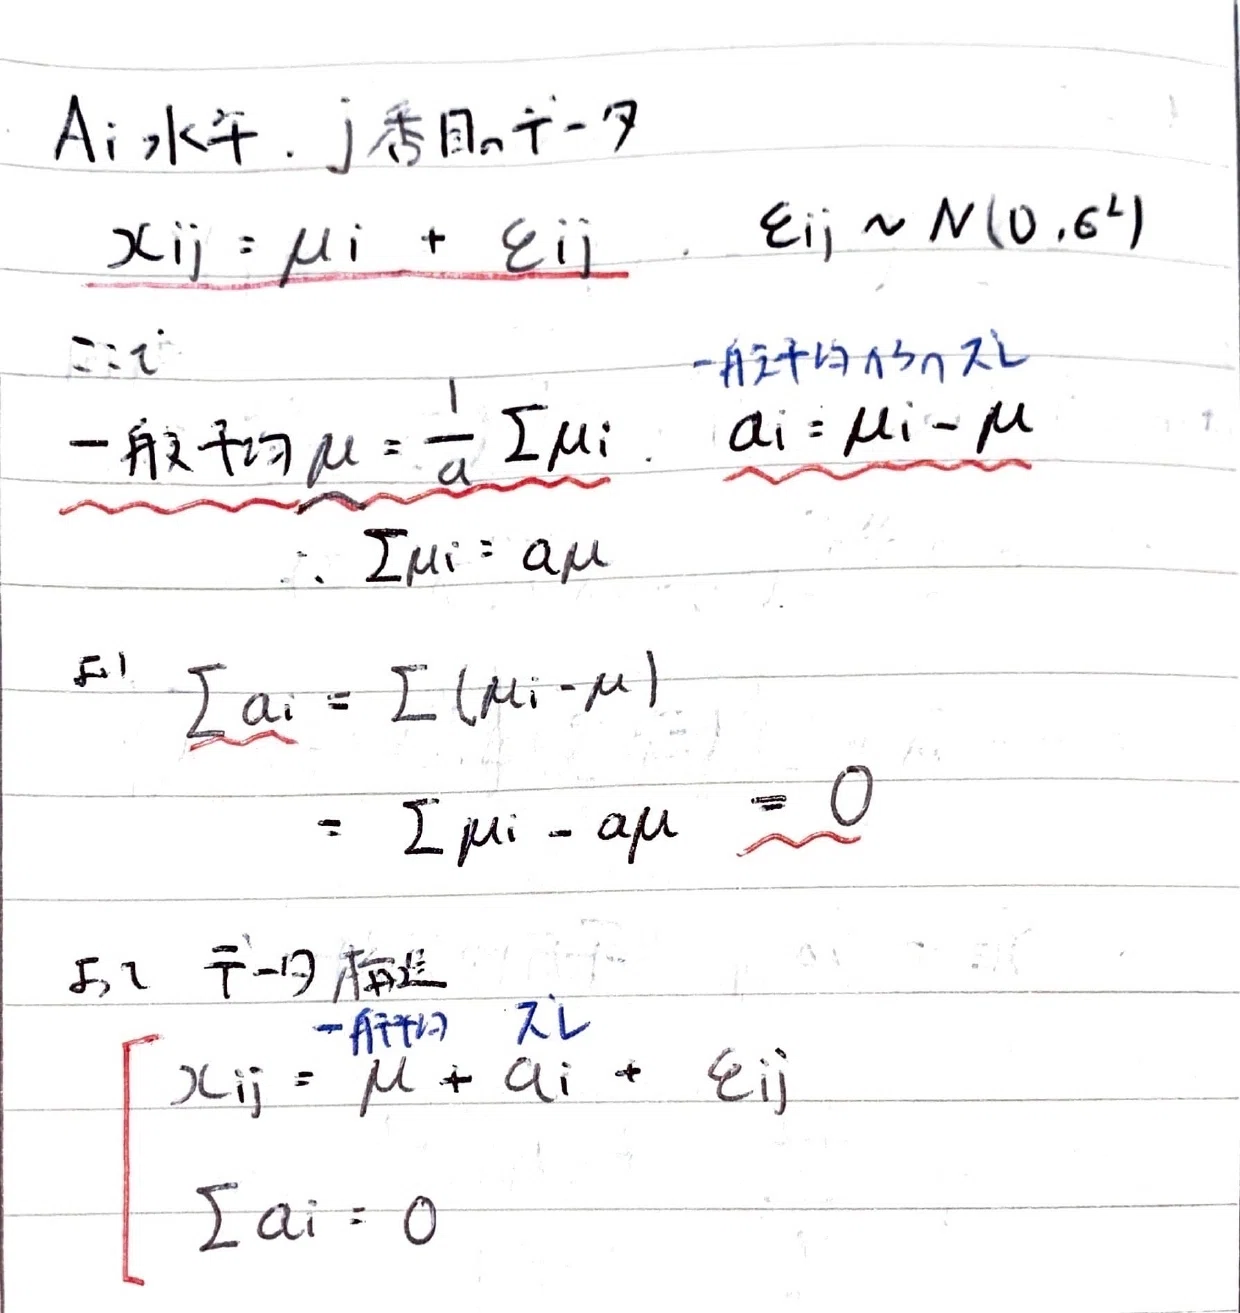 Ai水準．j番目のデータ
xij = μi + εij ． εij ~ N(0, σ²)
ここで
一般平均からのズレ
一般平均 μ = 1/a Σμi . ai = μi - μ
∴ Σμi = aμ
より Σai = Σ(μi - μ)
= Σμi - aμ = 0
よって データ構造
一般平均 ズレ
xij = μ + ai + εij
Σai = 0